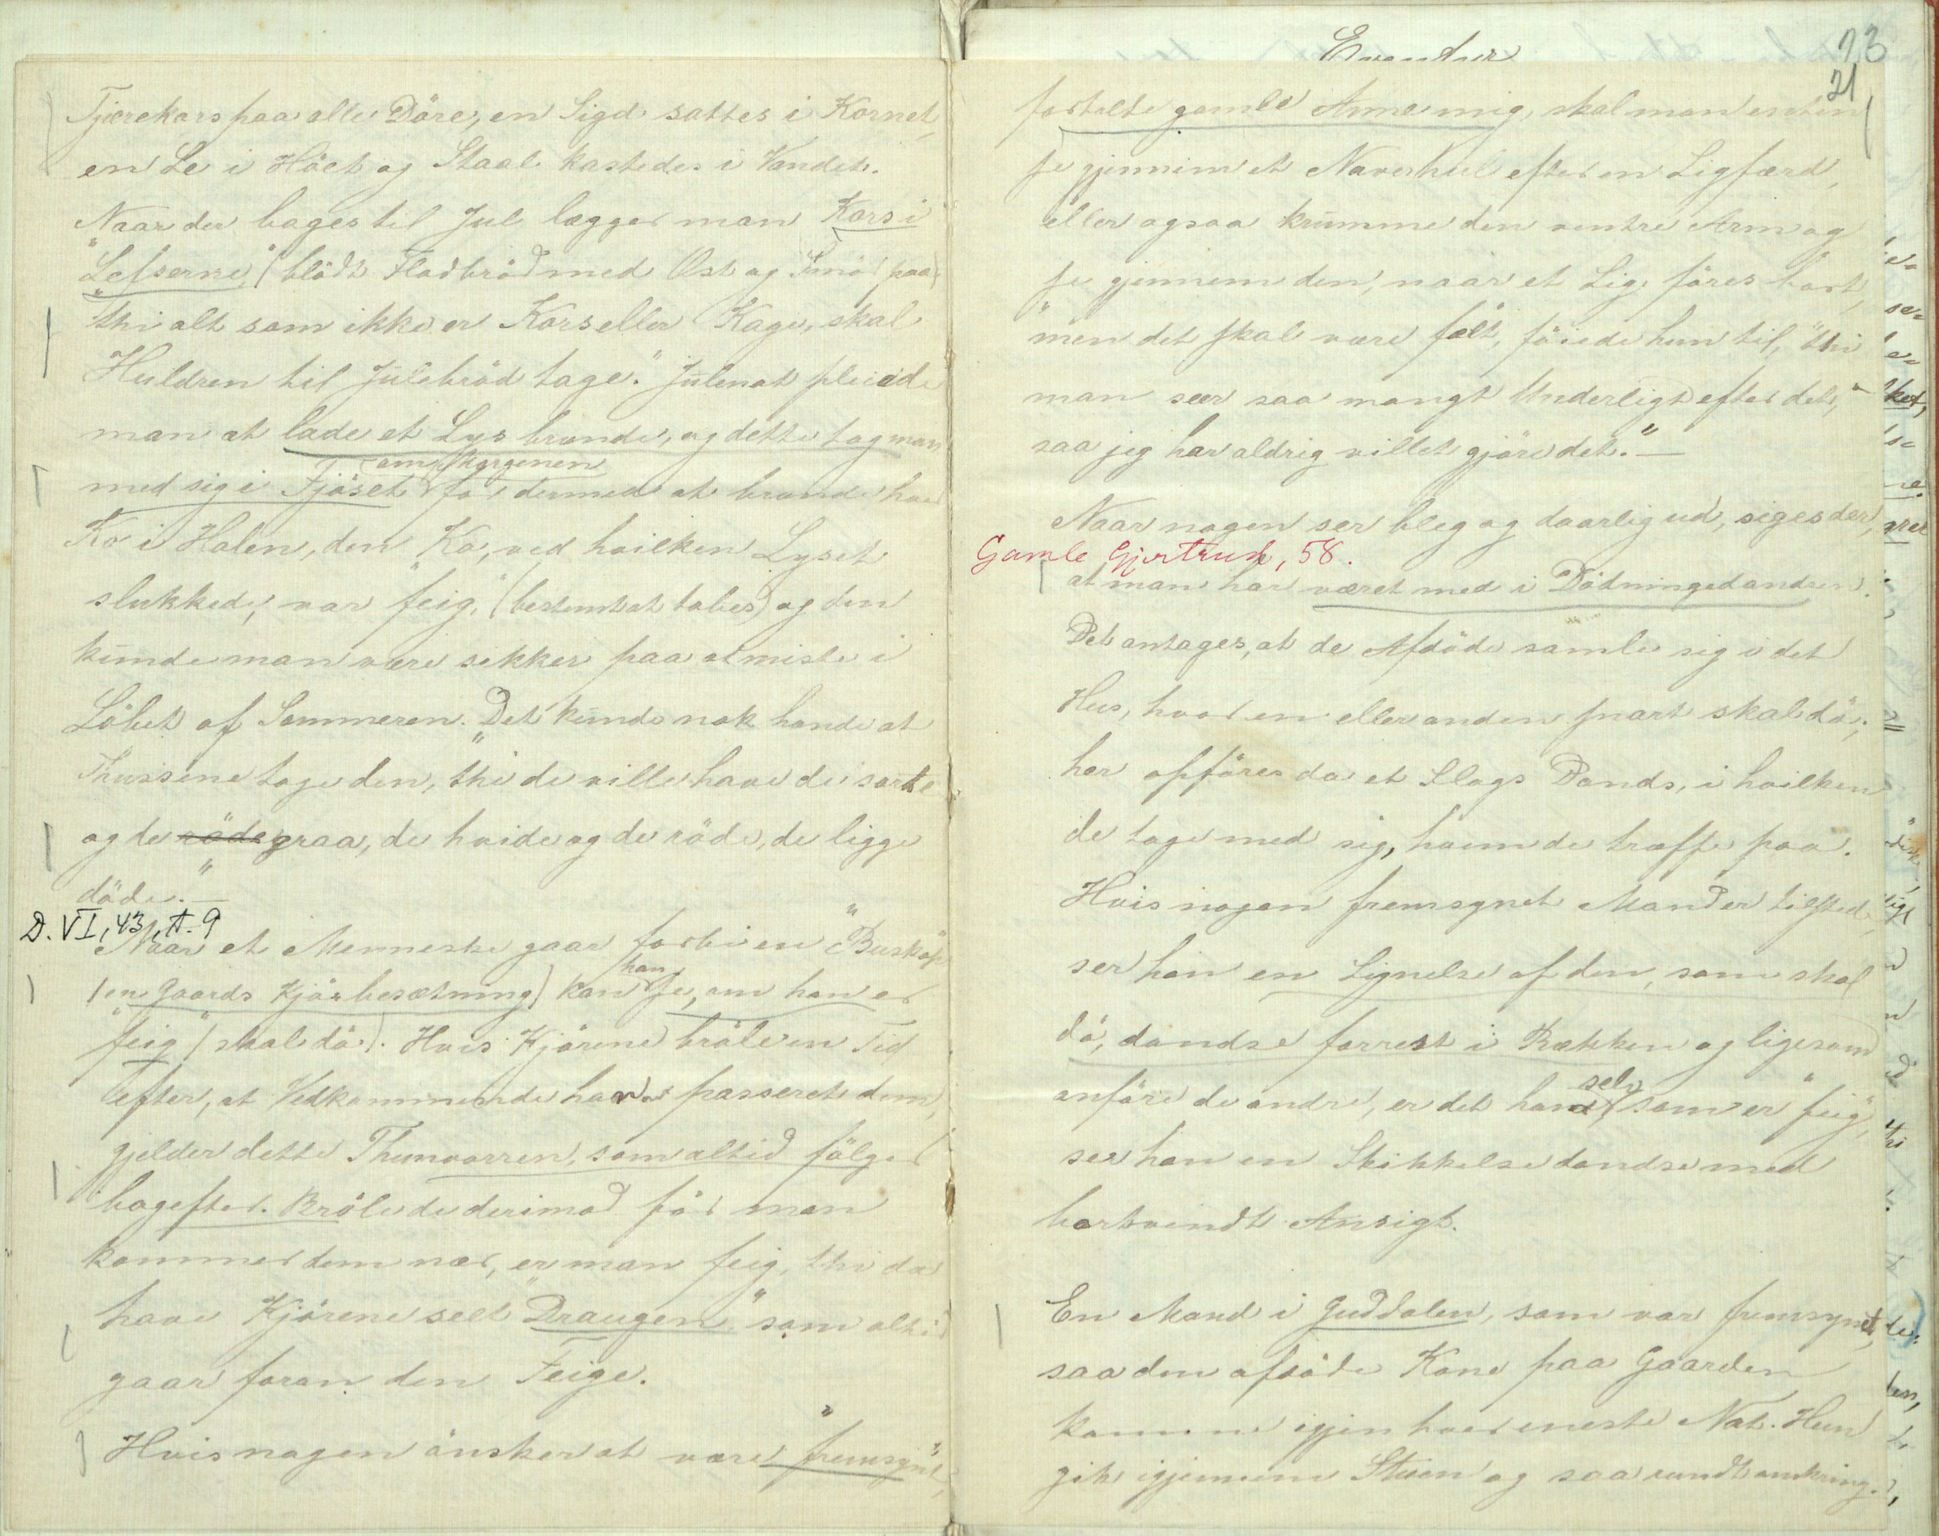 Tjærekors paa alle Döre, en Sigd sattes i Kornet,
en Le i Höet og Staal kastedes i Vandet.
Naar der bages til Jul lægger man Kors i
"Lefserne" (blödt Fladbröd med Ost og Smör paa)
"thi alt som ikke er Kors eller Kage, skal
Huldren til Julebröd tage." Julenat pleiede
man at lade et Lys brænde, og dette tog man
om Morgenen
med sig i Fjöset for dermed at brænde hver
Ko i Halen, den Ko, ved hvilken Lyset
slukkede, var "feig," (bestemt at tabes) og den
kunde man være sikker paa at miste i
Löbet af Sommeren. "Det kunde nok hænde at
Thussene toge den, thi de ville have de sorte
og de röde graa, de hvide og de röde, de ligge
döde." —
D. VI, 43, A. 9
Naar et Menneske gaar forbi en "Buskap"
(en Gaards Kjörbesætning) kan han se, om han er
"feig" (skal dö). Hvis Kjörene bröle en Tid
efter, at Vedkommende har passeret dem,
gjelder dette Thusvorren, som altid fölger
bagefter. Bröle de derimod för man
kommer dem nær, er man feig, thi da
have Kjörene seet "Draugen" som altid
gaar foran den Feige.
Hvis nogen önsker at være "fremsynt",
Eventyr
23
21
fortalte gamle Anne mig, skal man enten
se gjennem et Naverhul efter en Ligfærd,
eller ogsaa krumme den venstre Arm og
se gjennem den, naar et Lig föres bort,
"men det skal være fælt, föiede hun til, "thi
man seer saa mangt Underligt efter det,
saa jeg har aldrig villet gjöre det." —
Naar nogen ser bleg og daarlig ud, siges der,
Gamle Gjertrud, 58.
at man har været med i Dödningedandsen.
Det antages, at de Afdöde samle sig i det
Hus, hvor en eller anden snart skal dö;
her opföres da et Slags Dands, i hvilken
de tage med sig, hvem de træffe paa.
Hvis nogen fremsynet Mand er tilstede,
ser han en Lignelse af den, som skal
dö, dandse forrest i Rækken og ligesom
anföre de andre, er det ham selv som er "feig",
ser han en Skikkelse dandse med
bortvendt Ansigt.
En Mand i Guddalen, som var fremsynet,
saa den afdöde Kone paa Gaarden
komme igjen hver eneste Nat. Hun
gik igjennem Stuen og saa rundt omkring.